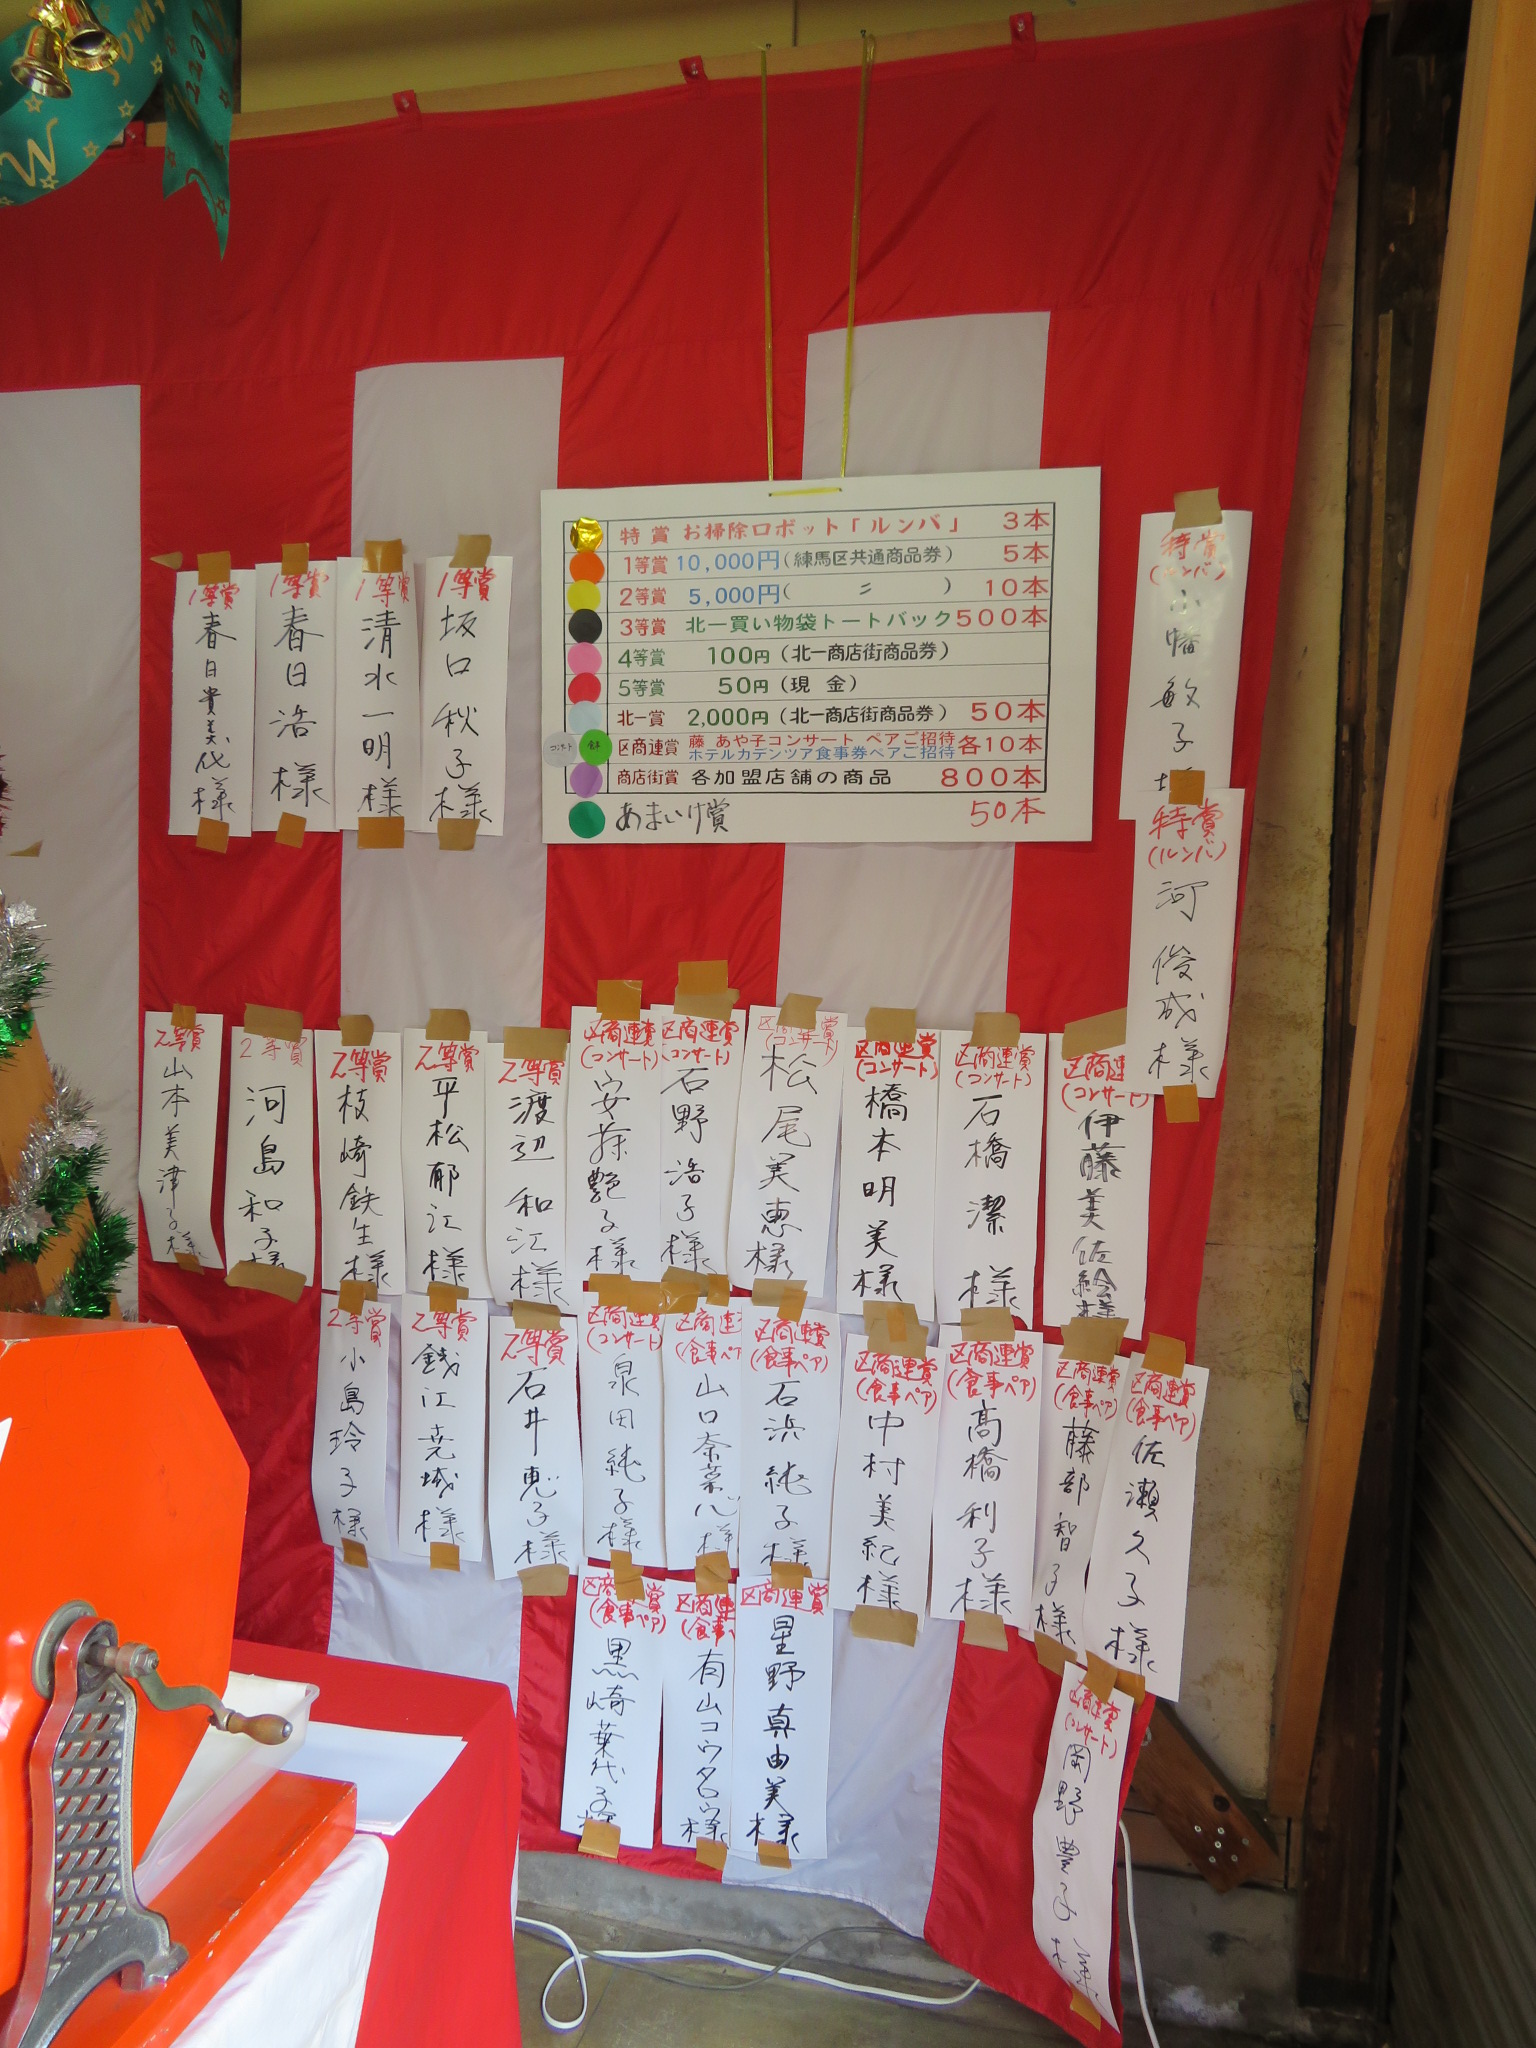 特賞 お掃除ロボット「ルンバ」 3本
1等賞 10,000円(練馬区共通商品券) 5本
2等賞 5,000円( 〃 ) 10本
3等賞 北一買い物袋トートバック 500本
4等賞 100円(北一商店街商品券)
5等賞 50円(現 金)
北一賞 2,000円(北一商店街商品券) 50本
コンサート 食事 区商連賞 藤 あや子コンサート ペアご招待 各10本
ホテルカデンツア食事券ペアご招待
商店街賞 各加盟店舗の商品 800本
あまいけ賞 50本
特賞
(ルンバ)
小幡敏子様
特賞
(ルンバ)
河 俊成様
1等賞
坂口秋子様
1等賞
清水一明様
1等賞
春日浩様
1等賞
春日貴美代様
区商連
(コンサート)
伊藤美佐絵様
区商連賞
(コンサート)
石橋 潔様
区商連賞
(コンサート)
橋本明美様
区商連賞
(コンサート)
松尾美恵様
区商連賞
(コンサート)
石野浩子様
区商連賞
(コンサート)
安藤艶子様
2等賞
渡辺和江様
2等賞
平松郁江様
2等賞
枝崎鉄生様
2等賞
河島和子様
2等賞
山本美津子様
区商連賞
(食事ペア)
佐瀬久子様
区商連賞
(食事ペア)
藤部智子様
区商連賞
(食事ペア)
髙橋利子様
区商連賞
(食事ペア)
中村美紀様
区商連賞
(食事ペア)
石浜純子様
区商連
(食事ペ
山口奈菜心様
区商連賞
(コンサート)
泉田純子様
2等賞
石井恵子様
2等賞
銭江尭城様
2等賞
小島玲子様
区商連賞
(コンサート)
岡野豊子様
区商連賞
星野真由美様
区商連
(食事
有山コウタロウ様
区商連賞
(食事ペア)
黒崎葉代子様